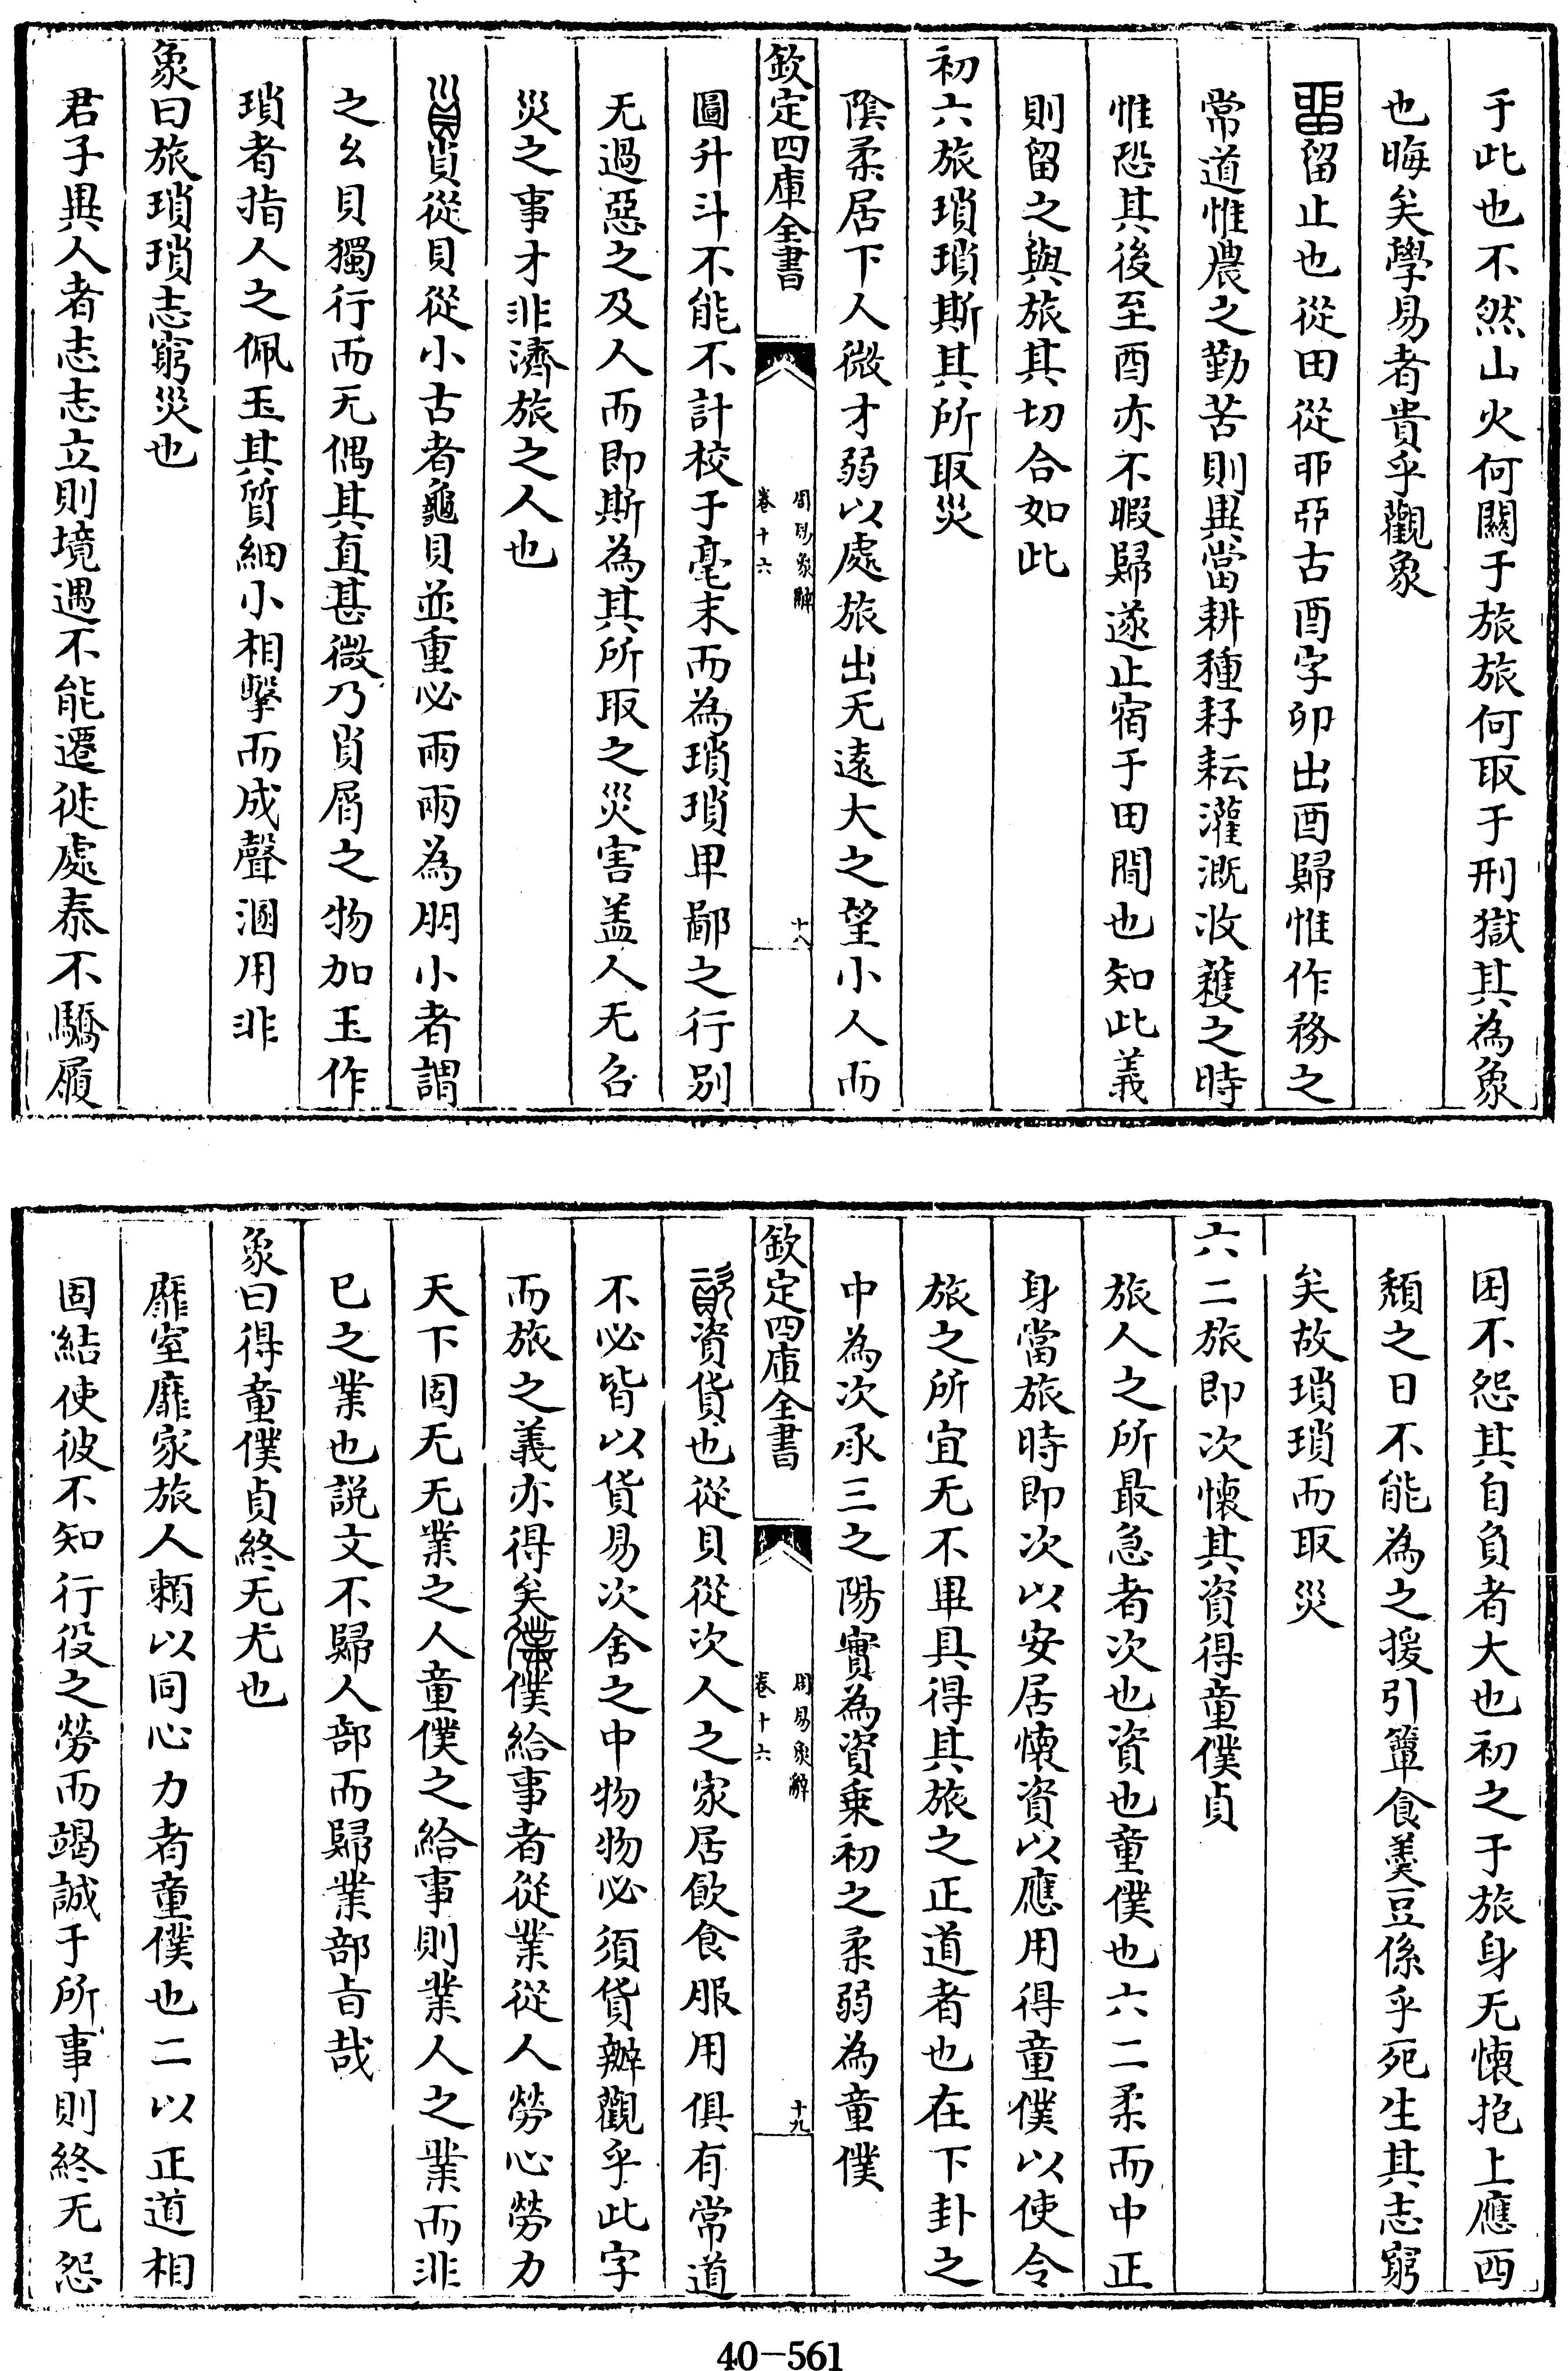 于此也不然山火何關于旅旅何取于刑獄其為象
也晦矣學易者貴乎觀象
留止也從田從丣丣古酉字卯出酉歸惟作務之
常道惟農之勤苦則異當耕種耔耘灌溉收穫之時
惟恐其後至酉亦不暇歸遂止宿于田間也知此義
則留之與旅其切合如此
初六旅瑣瑣斯其所取災
陰柔居下人微才弱以處旅出无遠大之望小人而
欽定四庫全書
周易象辭
卷十六
十八
圖升斗不能不計校于毫末而為瑣瑣卑鄙之行别
无過惡之及人而即斯為其所取之災害盖人无召
災之事才非濟旅之人也
𧴪從貝從小古者龜貝並重必兩兩為朋小者謂
之幺貝獨行而无偶其直甚微乃𧴪屑之物加玉作
瑣者指人之佩玉其質細小相擊而成聲溷用非
象曰旅瑣瑣志窮災也
君子異人者志志立則境遇不能遷徙處泰不驕履
困不怨其自負者大也初之于旅身无懷抱上應西
頽之日不能為之援引簞食羹豆係乎死生其志窮
矣故瑣瑣而取災
六二旅即次懷其資得童僕貞
旅人之所最急者次也資也童僕也六二柔而中正
身當旅時即次以安居懷資以應用得童僕以使令
旅之所宜无不畢具得其旅之正道者也在下卦之
中為次承三之陽實為資乗初之柔弱為童僕
欽定四庫全書
周易象辭
卷十六
十九
資貨也從貝從次人之家居飲食服用俱有常道
不必皆以貨易次舍之中物物必須貨辦觀乎此字
而旅之義亦得矣僕給事者從業從人勞心勞力
天下固无无業之人童僕之給事則業人之業而非
已之業也説文不歸人部而歸業部㫖哉
象曰得童僕貞終无尤也
靡室靡家旅人頼以同心力者童僕也二以正道相
固結使彼不知行役之勞而竭誠于所事則終无怨
40-561